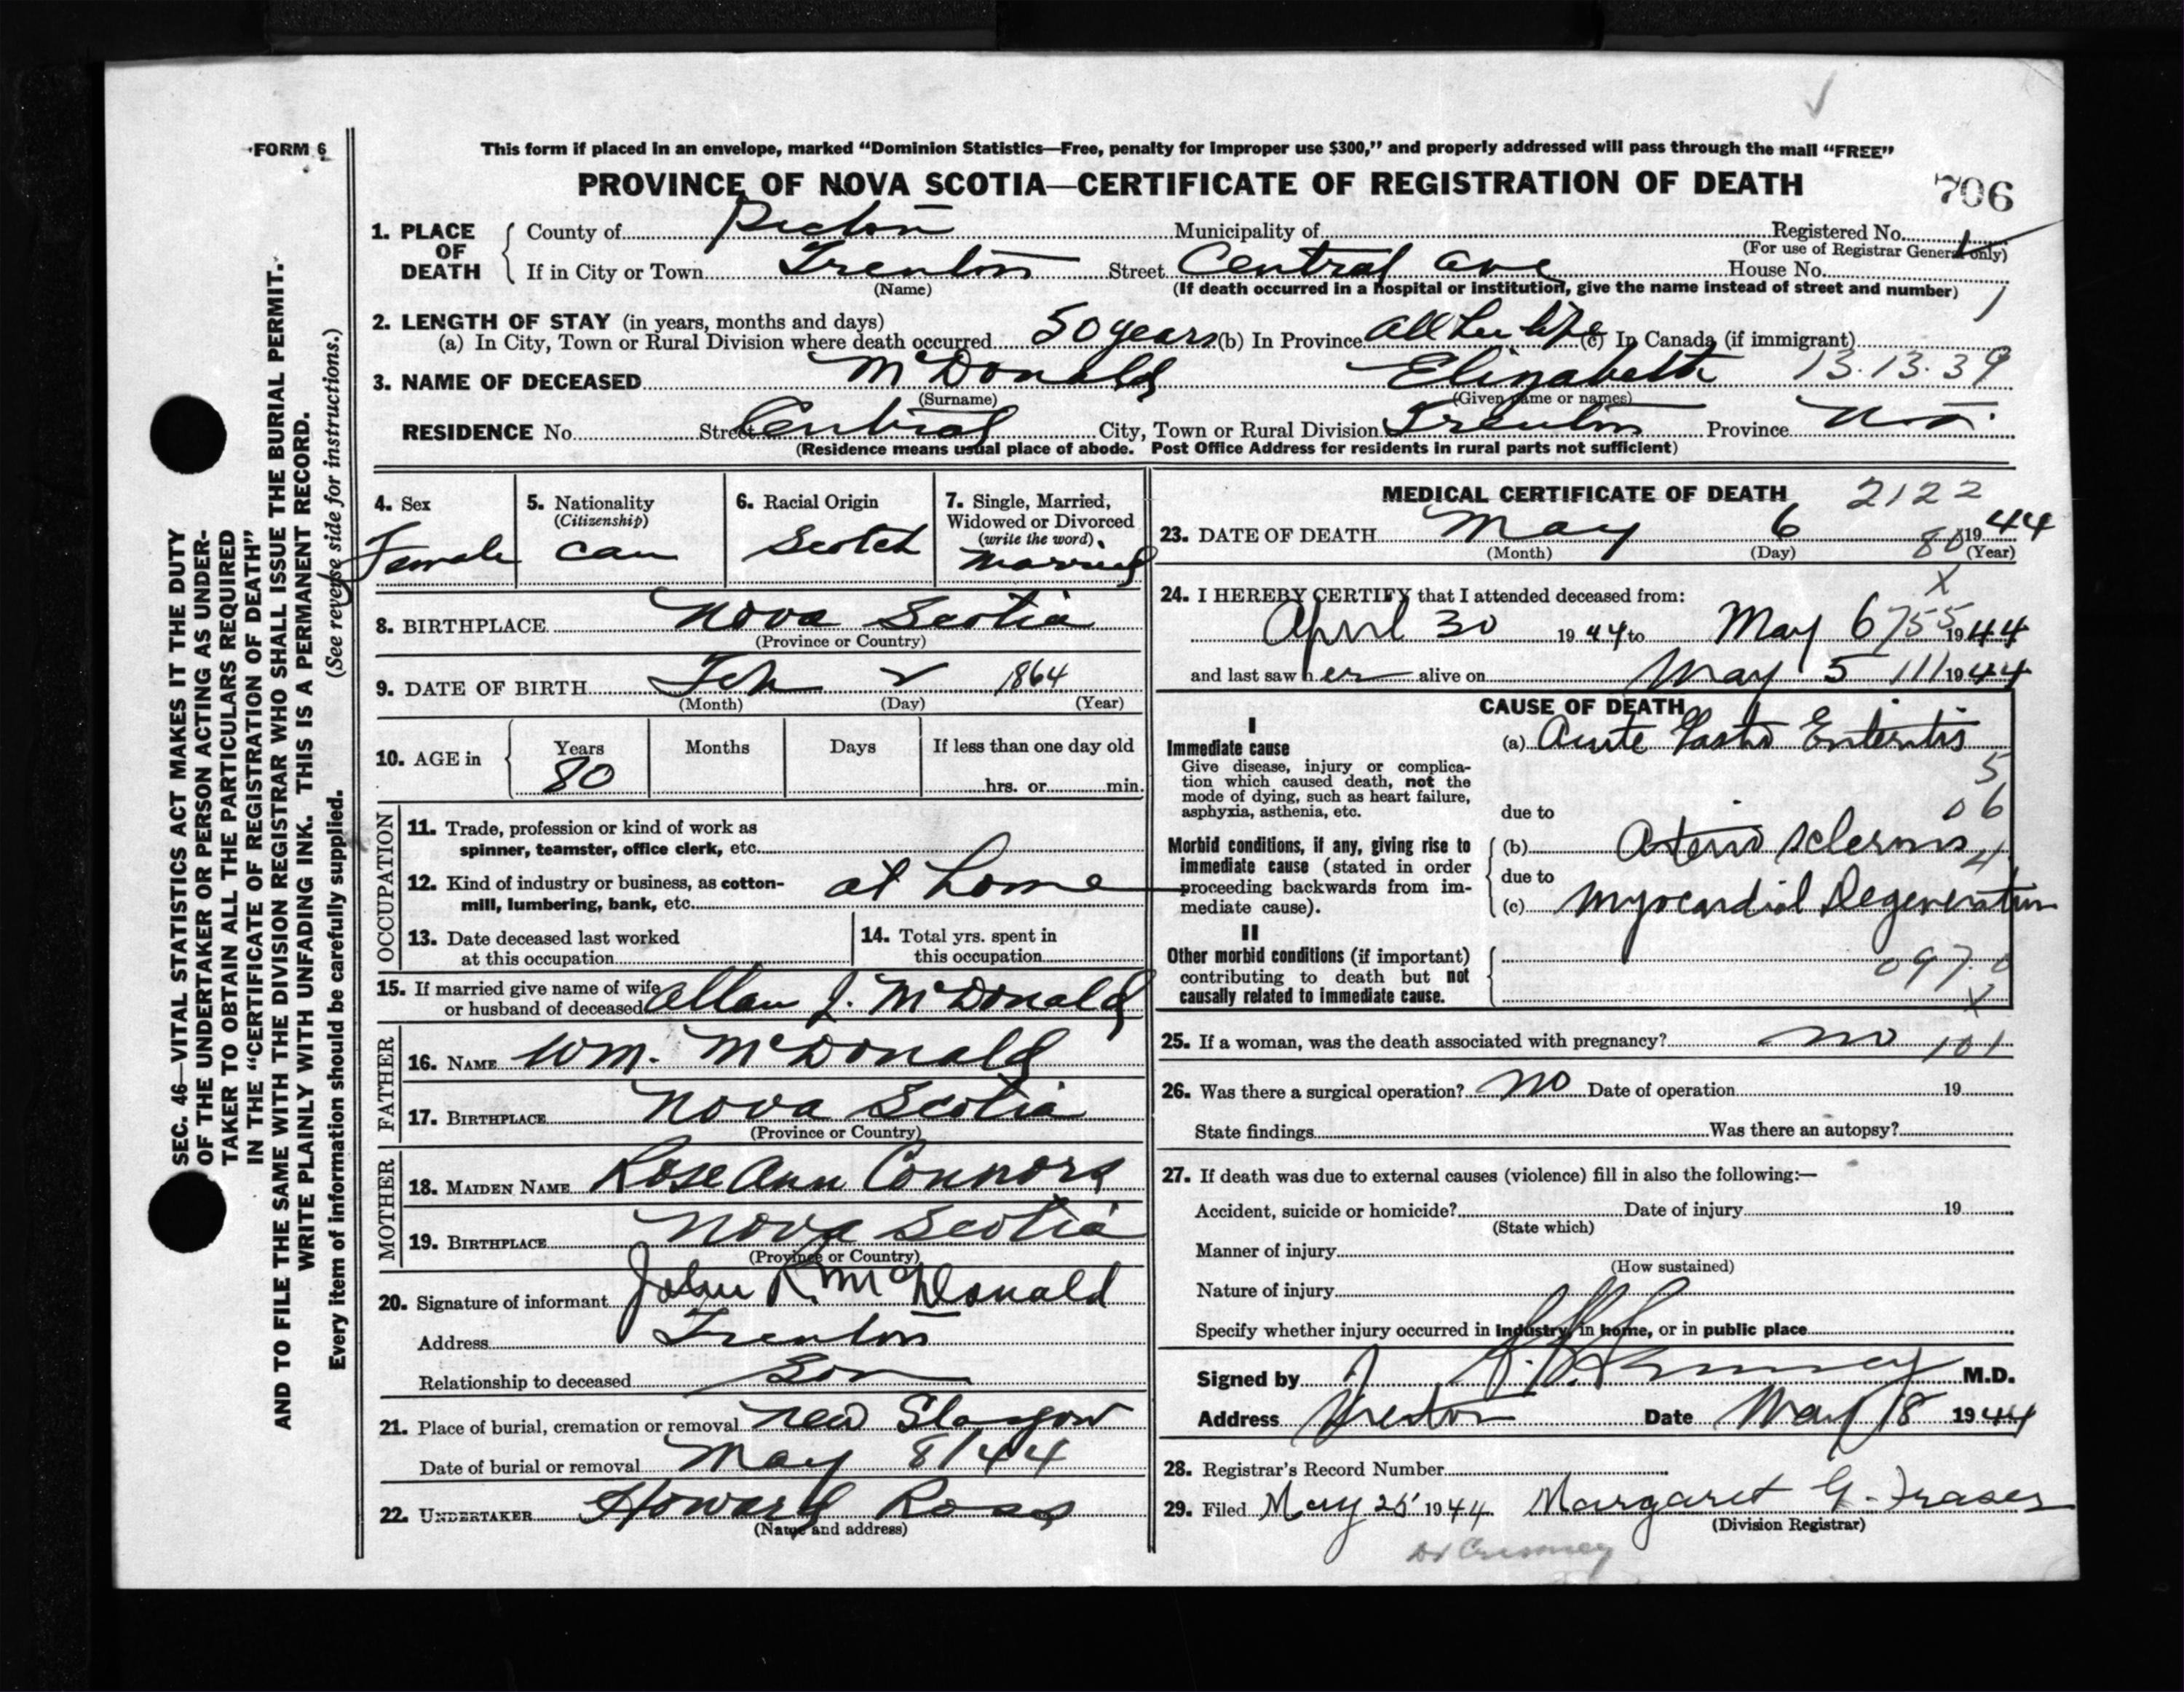 FORM 6
This form if placed in an envelope, marked "Dominion Statistics—Free, penalty for improper use $300," and properly addressed will pass through the mail "FREE"
PROVINCE OF NOVA SCOTIA—CERTIFICATE OF REGISTRATION OF DEATH
706
1. PLACE OF DEATH
County of Pictou Municipality of Registered No.
(For use of Registrar General only)
If in City or Town Trenton Street Central Ave House No.
(Name) (If death occurred in a hospital or institution, give the name instead of street and number)
2. LENGTH OF STAY (in years, months and days)
(a) In City, Town or Rural Division where death occurred 50 years (b) In Province All her life (c) In Canada (if immigrant)
3. NAME OF DECEASED McDonald Elizabeth 13.13.39
(Surname) (Given name or names)
RESIDENCE No. Street Central City, Town or Rural Division Trenton Province N.S.
(Residence means usual place of abode. Post Office Address for residents in rural parts not sufficient)
4. Sex
Female
5. Nationality
(Citizenship)
Can
6. Racial Origin
Scotch
7. Single, Married,
Widowed or Divorced
(write the word)
Married
8. BIRTHPLACE Nova Scotia
(Province or Country)
9. DATE OF BIRTH Feb 2 1864
(Month) (Day) (Year)
10. AGE in
Years Months Days If less than one day old
80 hrs. or min.
OCCUPATION
11. Trade, profession or kind of work as
spinner, teamster, office clerk, etc.
12. Kind of industry or business, as cotton-
mill, lumbering, bank, etc. at home
13. Date deceased last worked
at this occupation
14. Total yrs. spent in
this occupation
15. If married give name of wife
or husband of deceased Allan J. McDonald
FATHER
16. NAME Wm. McDonald
17. BIRTHPLACE Nova Scotia
(Province or Country)
MOTHER
18. MAIDEN NAME Rose Ann Connors
19. BIRTHPLACE Nova Scotia
(Province or Country)
20. Signature of informant John R. McDonald
Address Trenton
Relationship to deceased Son
21. Place of burial, cremation or removal New Glasgow
Date of burial or removal May 8/44
22. UNDERTAKER Howard Ross
(Name and address)
MEDICAL CERTIFICATE OF DEATH 2122
23. DATE OF DEATH May 6 1944
(Month) (Day) 80 (Year)
24. I HEREBY CERTIFY that I attended deceased from:
April 30 1944 to May 6 755 1944
and last saw her alive on May 5 111 1944
CAUSE OF DEATH
I
Immediate cause
Give disease, injury or complica-
tion which caused death, not the
mode of dying, such as heart failure,
asphyxia, asthenia, etc.
(a) Acute Gastro Enteritis
5
06
due to
Morbid conditions, if any, giving rise to
immediate cause (stated in order
proceeding backwards from im-
mediate cause).
(b) Arterio sclerosis
4
due to
(c) Myocardial Degeneration
II
Other morbid conditions (if important)
contributing to death but not
causally related to immediate cause.
097.0
X
25. If a woman, was the death associated with pregnancy? no 101
26. Was there a surgical operation? No Date of operation 19
State findings Was there an autopsy?
27. If death was due to external causes (violence) fill in also the following:—
Accident, suicide or homicide? Date of injury 19
(State which)
Manner of injury
(How sustained)
Nature of injury
Specify whether injury occurred in industry, in home, or in public place
Signed by M.D.
Address Trenton Date May 18 1944
28. Registrar's Record Number
29. Filed May 25 1944 Margaret G. Fraser
(Division Registrar)
SEC. 46—VITAL STATISTICS ACT MAKES IT THE DUTY
OF THE UNDERTAKER OR PERSON ACTING AS UNDER-
TAKER TO OBTAIN ALL THE PARTICULARS REQUIRED
IN THE "CERTIFICATE OF REGISTRATION OF DEATH"
AND TO FILE THE SAME WITH THE DIVISION REGISTRAR WHO SHALL ISSUE THE BURIAL PERMIT.
WRITE PLAINLY WITH UNFADING INK. THIS IS A PERMANENT RECORD.
Every item of information should be carefully supplied. (See reverse side for instructions.)